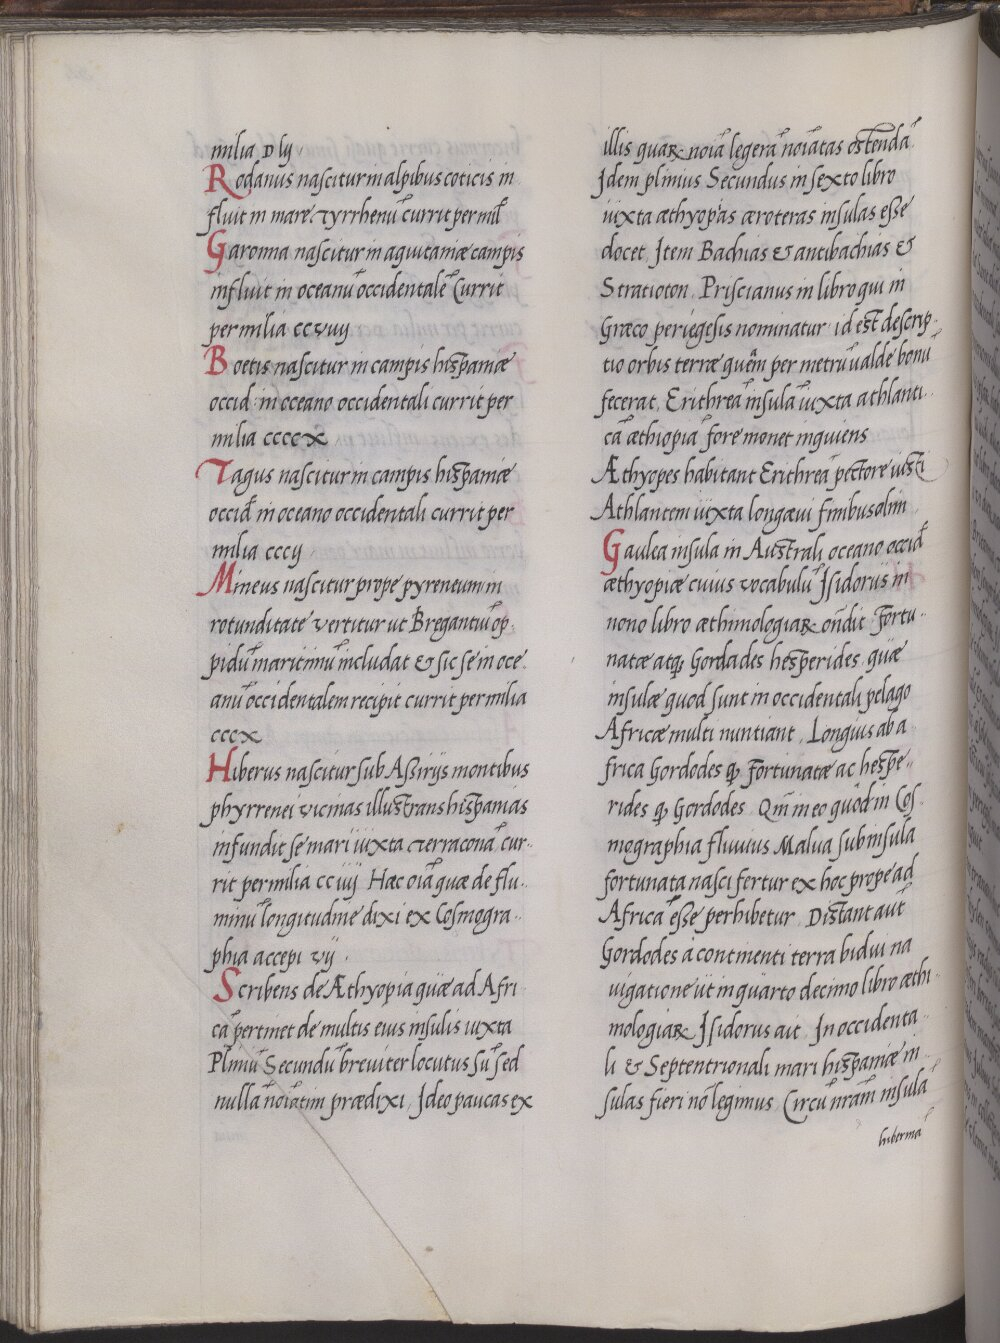 milia D lvij
Rodanus nascitur in alpibus coticis in
fluit in mare tyrrhenū currit per mil̄
Garonna nascitur in aquitaniæ campis
influit in oceanū occidentalē Currit
per milia ccviiij
Boetis nascitur in campis hispaniæ
occid: in oceano occidentali currit per
milia ccccx
Tagus nascitur in campis hispaniæ
occid̄ in oceano occidentali currit per
milia cccij
Mineus nascitur prope pyreneum in
rotunditate vertitur ut Bregantiū op-
pidū maritimū includat & sic se in oce
anū occidentalem recipit currit per milia
cccx
Hiberus nascitur sub Assirijs montibus
phyrrenei vicinas illustrans hispanias
infundit se mari iuxta terraconā cur-
rit per milia cciiij Hæc oīa quæ de flu-
minū longitudine dixi ex Cosmogra-
phia accepi vij
Scribens de Æthyopia quæ ad Afri
cā pertinet de multis eius insulis iuxta
Pliniū Secundū breviter locutus sū sed
nullā noīatim prædixi, Ideo paucas ex
illis quaꝝ noīā legerā noīatas ostendā
Idem plinius Secundus in sexto libro
iuxta æthyopas æroteras insulas esse
docet, Item Bachias & antibachias &
Stratioton, Priscianus in libro qui in
Græco periegesis nominatur id est descrip-
tio orbis terræ quem per metrū valde bonū
fecerat, Erithreā insulā iuxta athlanti-
cā æthiopiā fore monet inquiens
Æthyopes habitant Erithreā pectore iusti
Athlantem iuxta longævi finibus olim
Gaulea insula in Australi oceano occid̄
æthyopiæ cuius vocabulū Isidorus in
nono libro æthimologiaꝝ ondit Fortu-
natæ atqꝫ Gordades hesperides quæ
insulæ quod sunt in occidentali pelago
Africæ multi nuntiant, Longius ab a
frica Gordodes qꝫ Fortunatæ ac hespe-
rides qꝫ Gordodes Qm̄ in eo quod in Cos-
mographia fluvius Malua sub insula
fortunata nasci fertur ex hoc prope ad
Africā esse perhibetur, Distant aut̄
Gordodes à continenti terra bidui na
vigatione ut in quarto decimo libro æthi-
mologiaꝝ Isidorus ait In occidenta-
li & Septentrionali mari hispaniæ in-
sulas fieri nō legimus Circū nrām insulā
hibernia